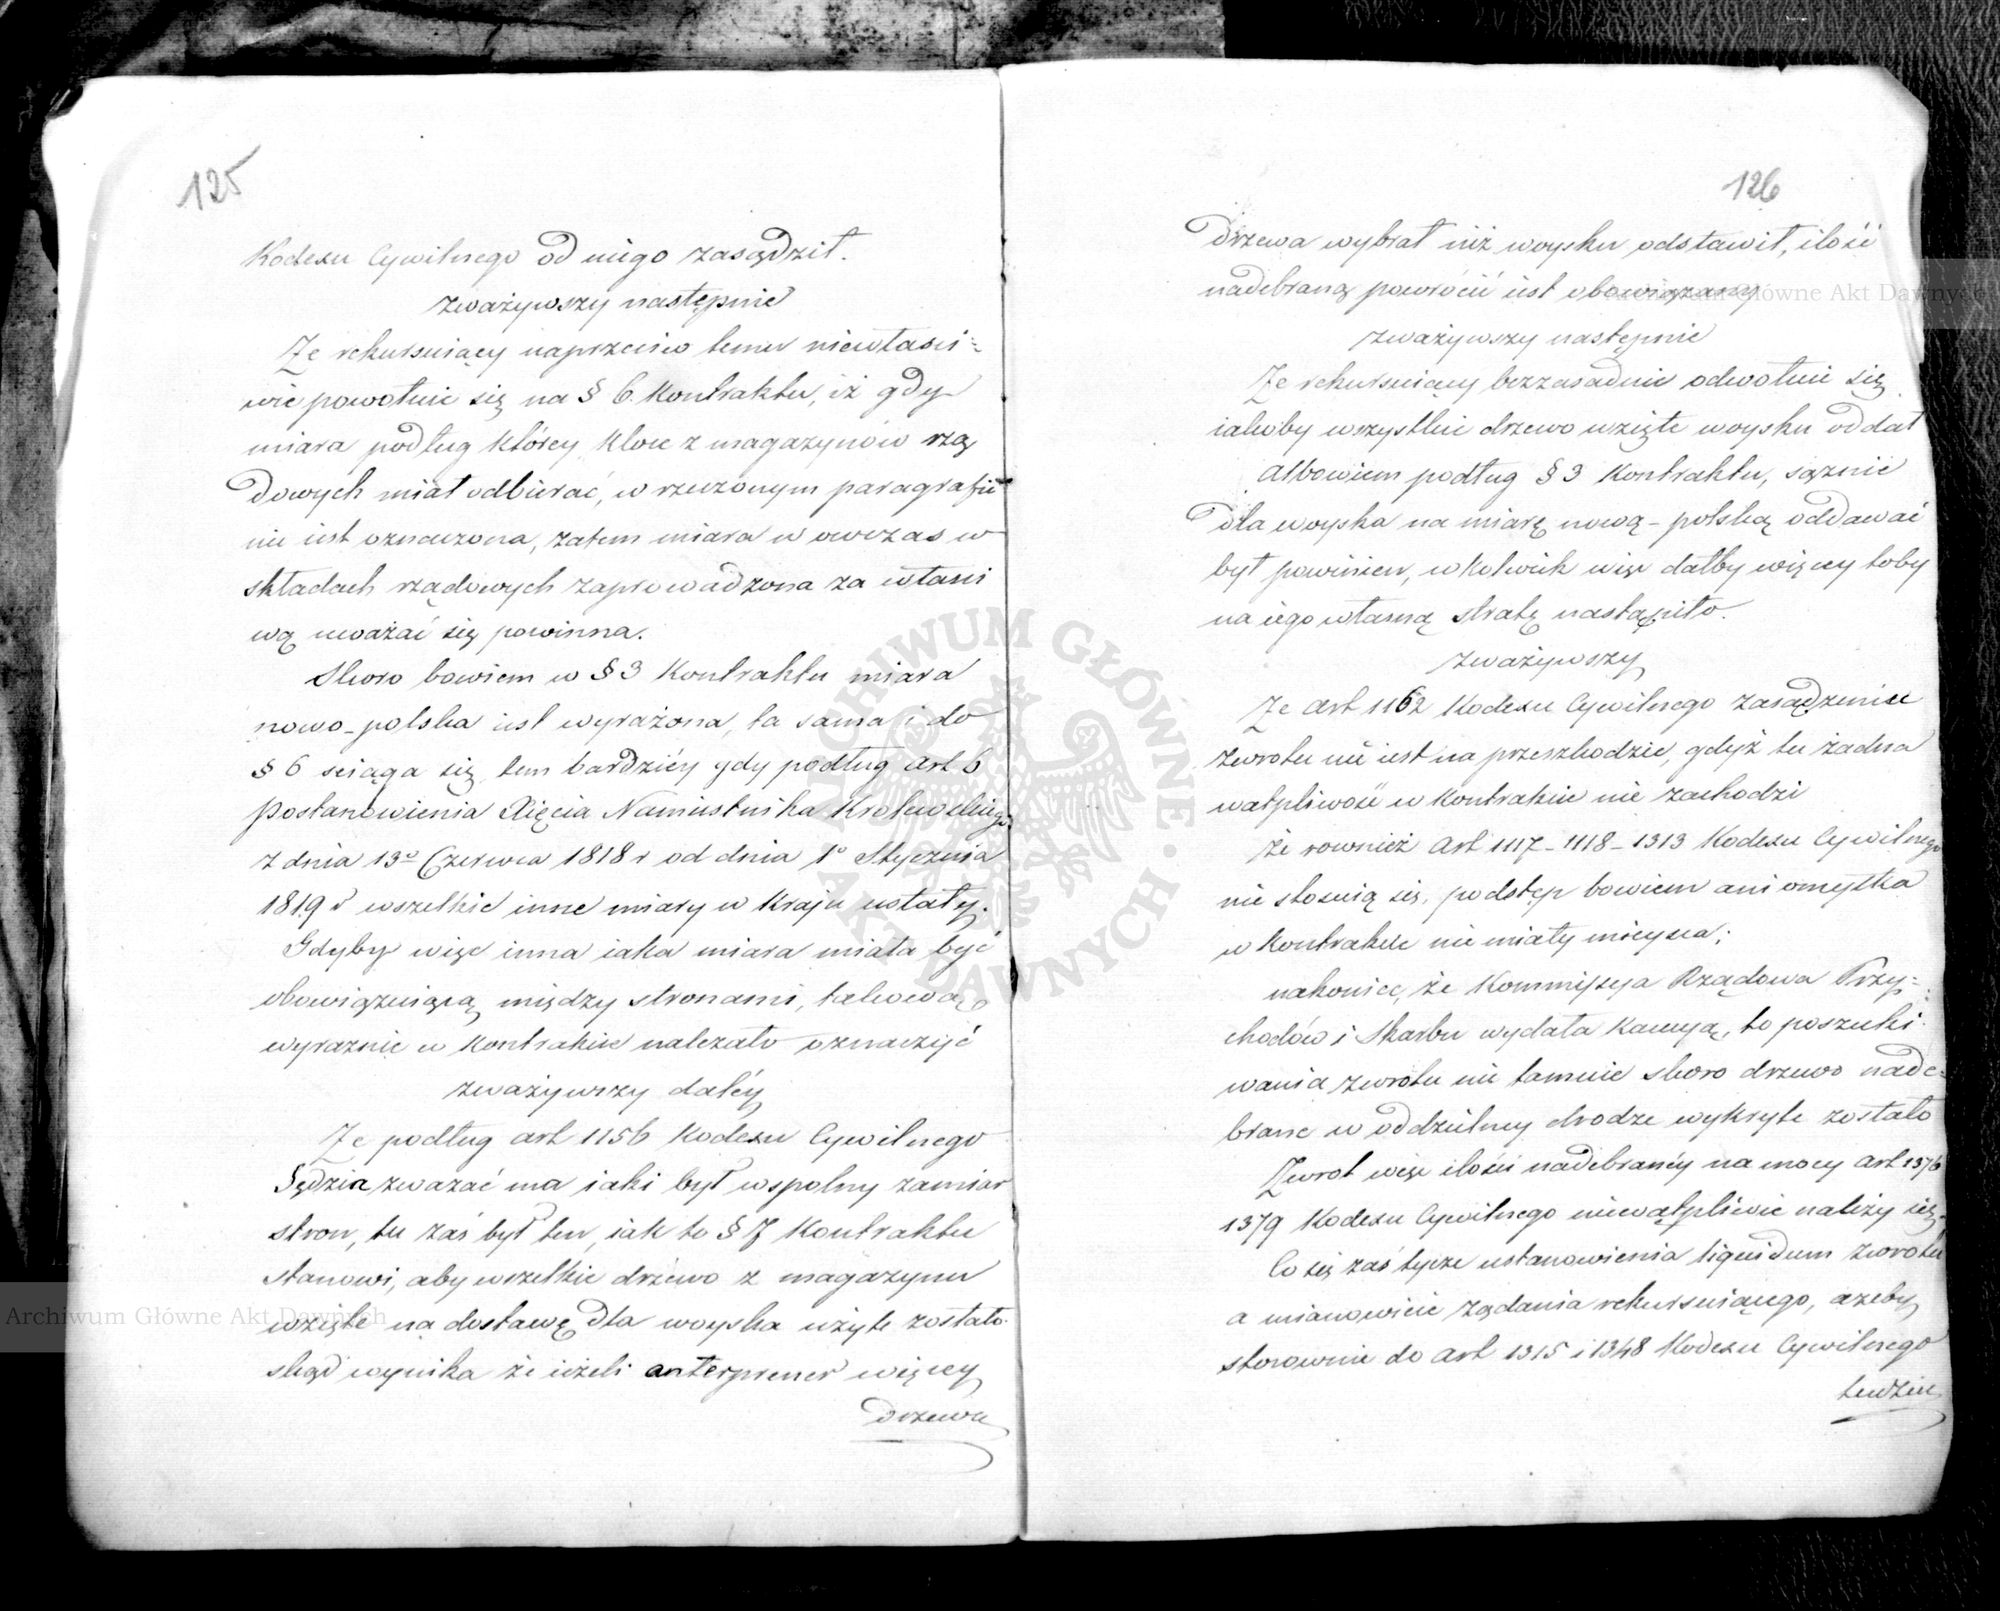 125
Kodexu Cywilnego od niego zasądził.
Zważywszy następnie
Ze rekursuiący naprzeciw temu niewłaści=
wie powołuie się na § 6. Kontraktu, iż gdy
miara podług którey kloce z magazynów rzą
dowych miał odbierać, w rzeczonym paragrafie
nie iest oznaczona, zatem miara w owczas w
składach rządowych zaprowadzona za właści
wą uważać się powinna.
Skoro bowiem w § 3 Kontraktu miara
nowo-polska iest wyrażona, ta sama i do
§ 6 ściąga się, tem bardziéy gdy podług art. 6
postanowienia Xięcia Namiestnika Królewskiego
z dnia 13º Czerwca 1818 r od dnia 1º Stycznia
1819 r wszelkie inne miary w kraju ustały.
Gdyby więc inna iaka miara miała być
obowiązuiącą między stronami, takową
wyraznie w kontrakcie należało oznaczyć
Zważywszy daléy
Ze podług art 1156 Kodexu Cywilnego
Sędzia zważać ma iaki był wspolny zamiar
stron, tu zaś był ten, iak to § 7 Kontraktu
stanowi, aby wszelkie drzewo z magazynu
wzięte na dostawę dla woyska użyte zostało.
skąd wynika że ieżeli enterprener więcey
Drzewa
126
Drzewa wybrał niż woysku odstawił, ilość
nadebraną powrócić iest obowiązany
Zważywszy następnie
Ze rekursuiący bezzasadnie odwołuie się
iakoby wszystkie drzewo wzięte woysku oddał
Albowiem podług § 3 Kontraktu, sążnie
Dla woyska na miarę nowo-polską oddawać
był powinien, cokolwiek więc dałby więcey toby
na iego własną stratę nastąpiło.
Zważywszy
Ze art 1162 Kodexu Cywilnego zasądzeniu
zwrotu nie iest na przeszkodzie, gdyż tu żadna
wątpliwość w kontrakcie nie zachodzi
że rownież art 1117-1118-1313 Kodexu Cywilnego
nie stosuią się, podstęp bowiem ani omyłka
w kontrakcie nie miały mieysca;
nakoniec, że Kommissya Rządowa Przy=
chodów i Skarbu wydała kaucyą, to poszuki
wania zwrotu nie tamuie skoro drzewo nade=
brane w oddzielney drodze wykryte zostało
Zwrot więc ilości nadebranéy na mocy art 1376
1379 Kodexu Cywilnego niewątpliwie należy się.
Co się zaś tycze ustanowienia liquidum zwrotu
a mianowicie żądania rekursuiącego, ażeby
stosownie do art 1315 i 1348 Kodexu Cywilnego
ARCHIWUM GŁÓWNE AKT DAWNYCH
Archiwum Główne Akt Dawnych
Archiwum Główne Akt Dawnych